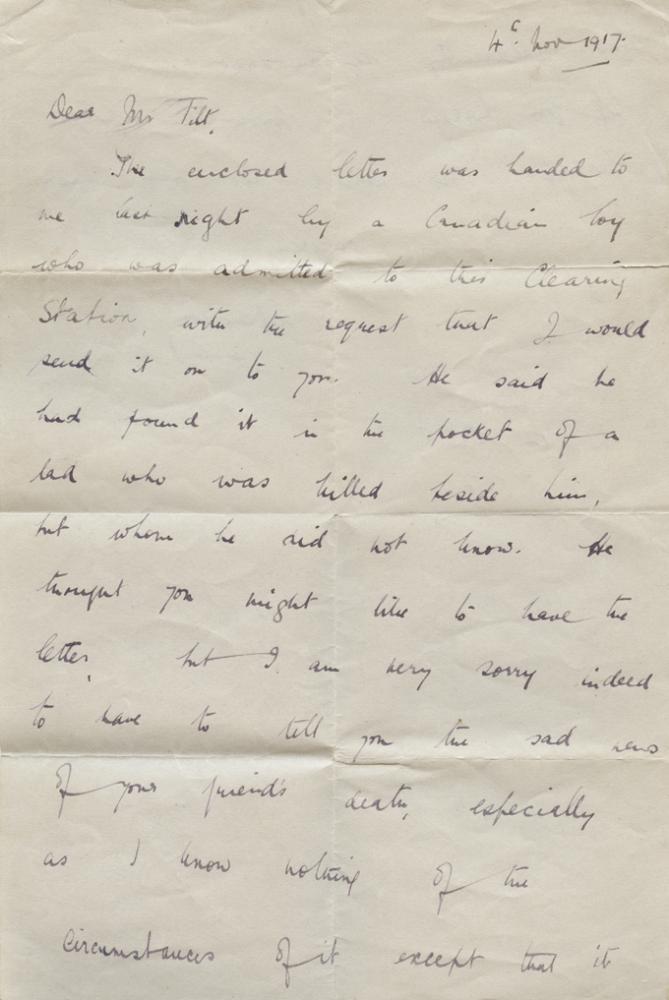 4th Nov 1917.
Dear Mr Tilt,
The enclosed letter was handed to
me last night by a Canadian boy
who was admitted to this Clearing
Station, with the request that I would
send it on to you. He said he
had found it in the pocket of a
lad who was killed beside him,
but whom he did not know. He
thought you might like to have the
letter, but I am very sorry indeed
to have to tell you the sad news
of your friend's death, especially
as I know nothing of the
circumstances of it except that it